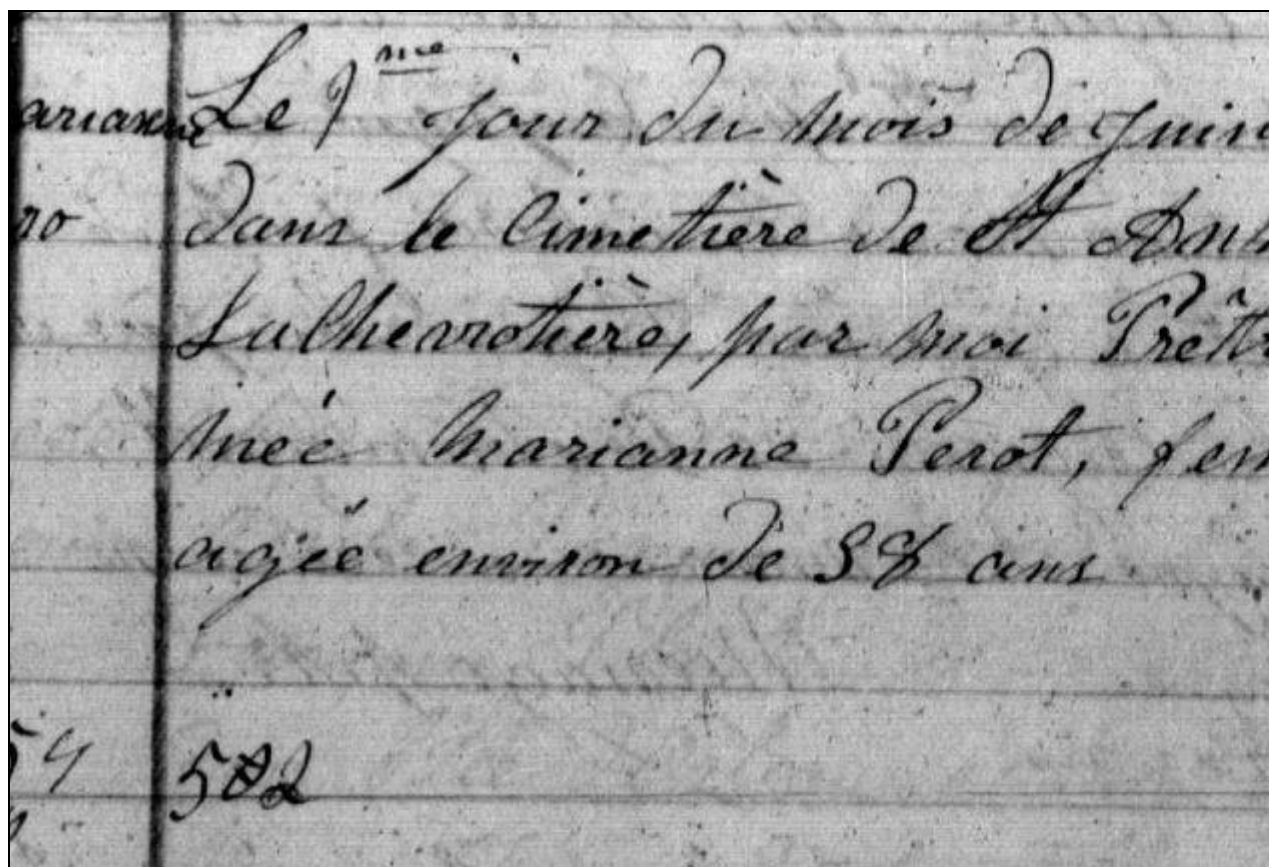 arianne Le 9me jour du mois de Juin
ro dans le Cimetière de St Ant
LaChevrotière, par moi Prêtr
mée Marianne Perot, fem
agée environ de 58 ans.
54 502